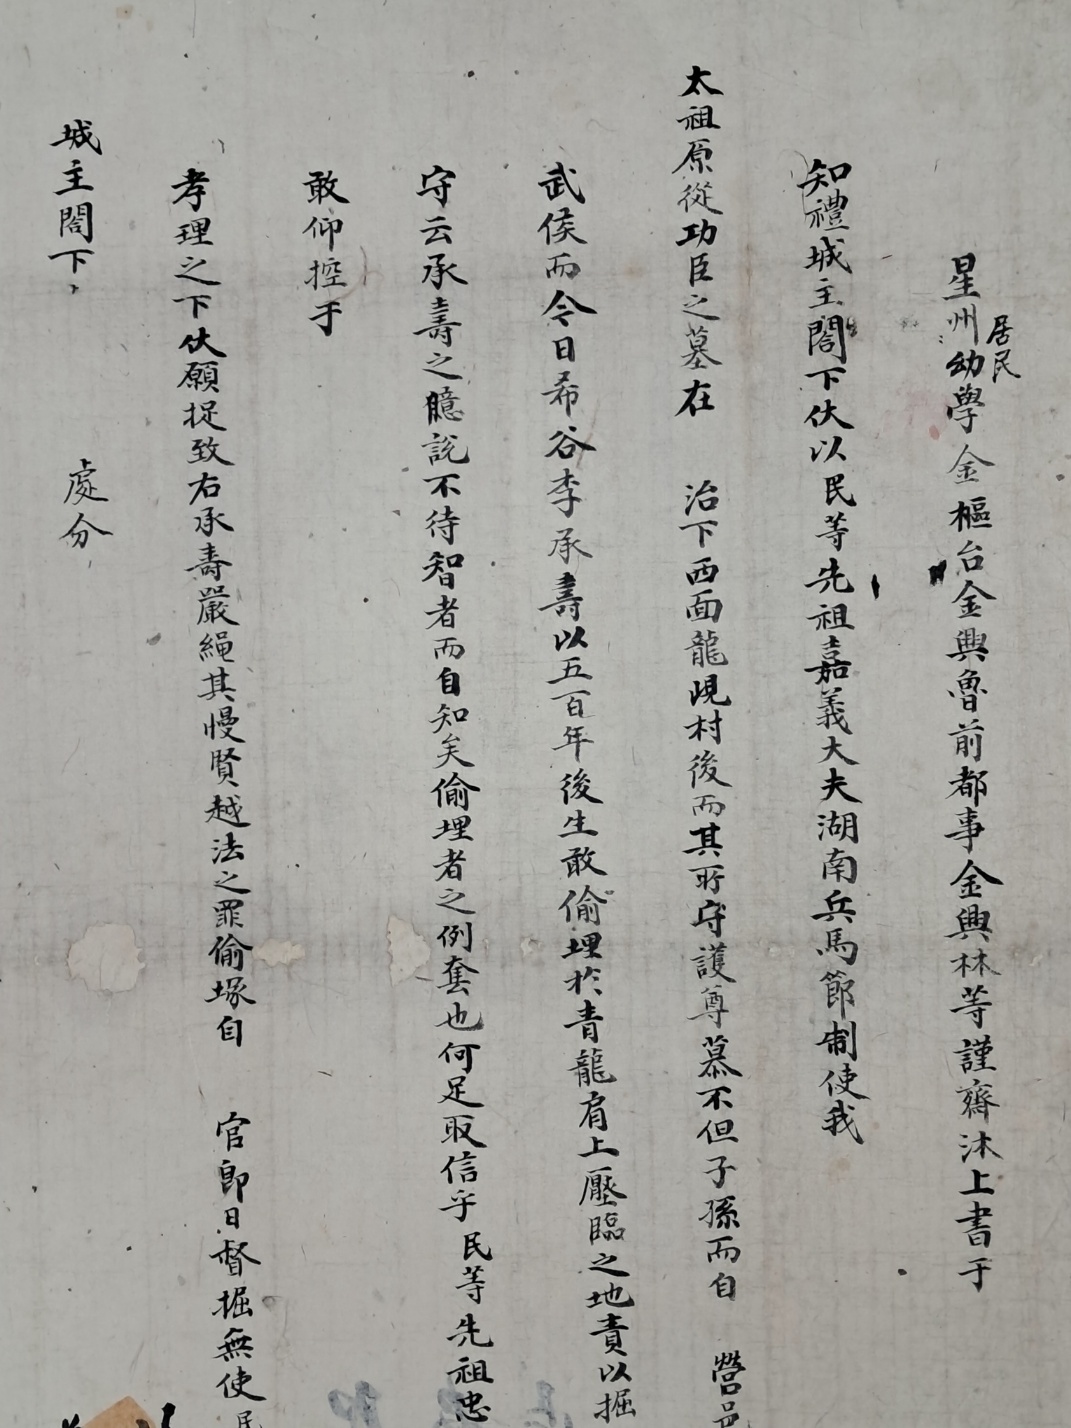 星州居民幼學金樞台金興魯前都事金興林等謹齋沐上書于
知禮城主閤下伏以民等先祖嘉義大夫湖南兵馬節制使我
太祖原從功臣之墓在 治下西面龍峴村後而其所守護尊慕不但子孫而自 營邑
武侯而今日希谷李承壽以五百年後生敢偷埋於青龍肩上壓臨之地責以掘
守云承壽之臆說不待智者而自知矣偷埋者之例套也何足取信乎民等先祖忠
敢仰控于
孝理之下伏願捉致右承壽嚴繩其慢賢越法之罪偷塚自 官卽日督掘無使民
城主閤下 處分